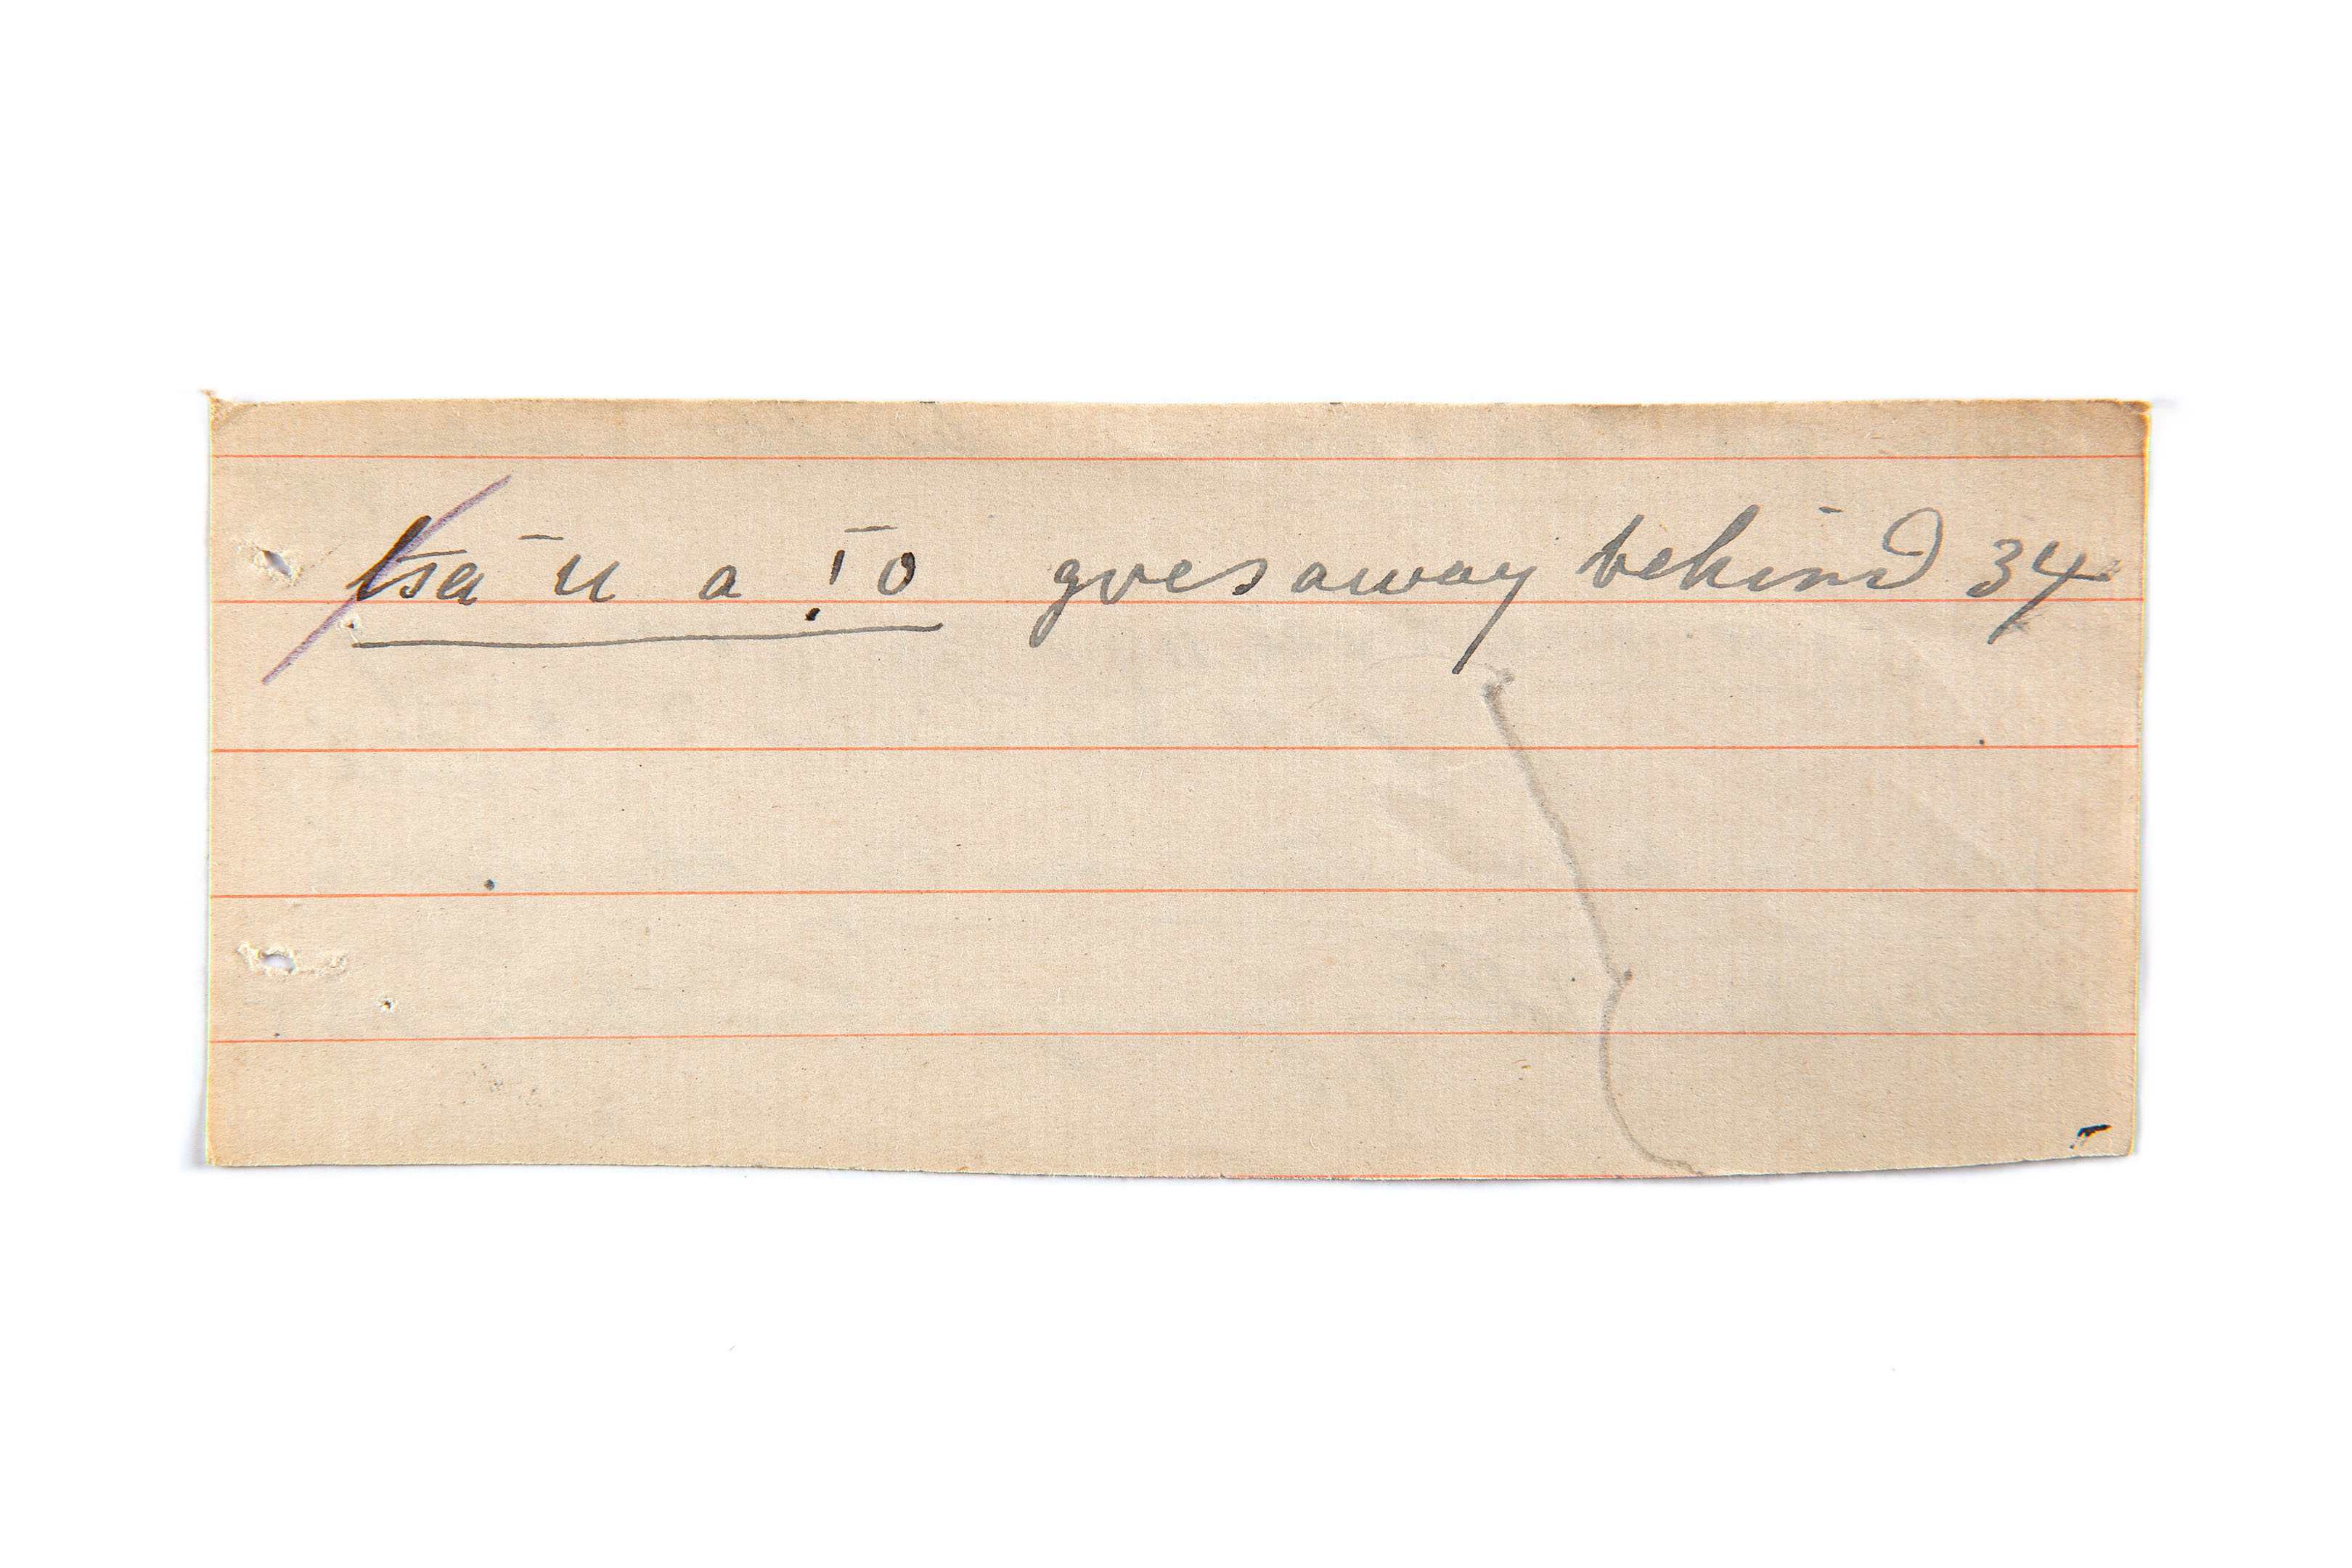 tsa ̄ u a ị̄ o goes away behind 34